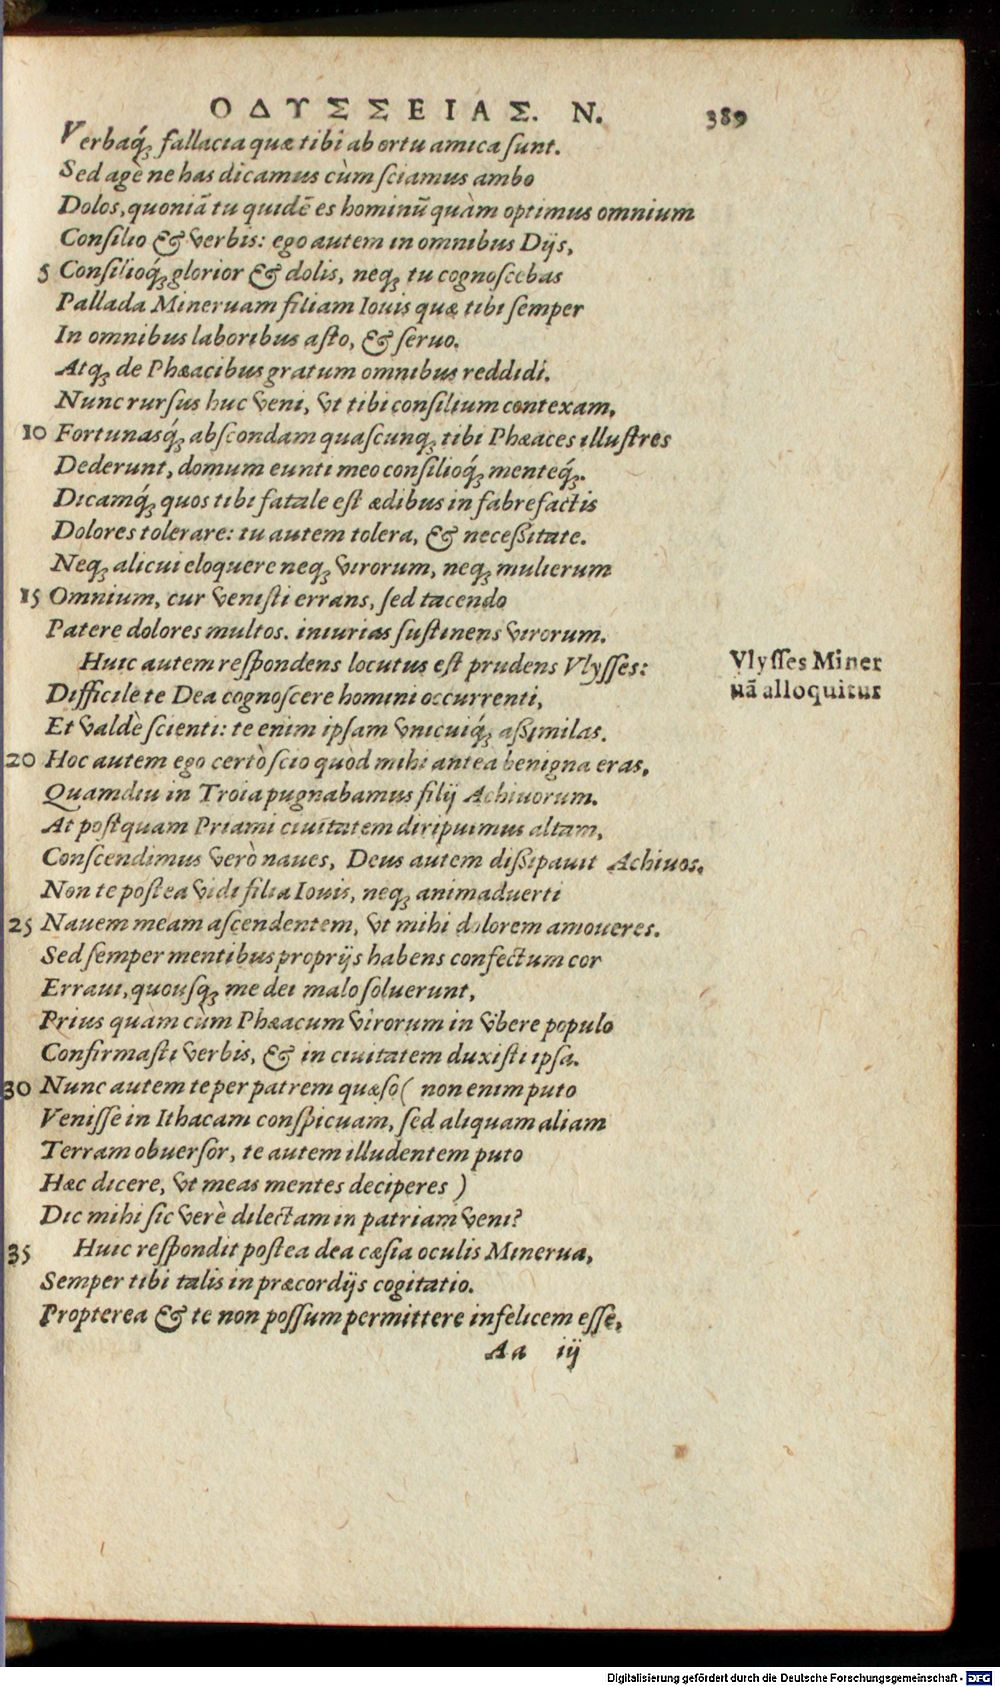 ΟΔΥΣΣΕΙΑΣ. Ν. 389
Verbaq́ꝫ fallacia quæ tibi ab ortu amica sunt.
Sed age ne has dicamus cùm sciamus ambo
Dolos, quoniã tu quidẽ es hominũ quàm optimus omnium
Consilio & verbis: ego autem in omnibus Dijs,
5 Consilioq́ꝫ glorior & dolis, neqꝫ tu cognoscebas
Pallada Mineruam filiam Iouis quæ tibi semper
In omnibus laboribus asto, & seruo.
Atqꝫ de Phæacibus gratum omnibus reddidi.
Nunc rursus huc veni, vt tibi consilium contexam,
10 Fortunasq́ꝫ abscondam quascunqꝫ tibi Phæaces illustres
Dederunt, domum eunti meo consilioq́ꝫ menteq́ꝫ.
Dicamq́ꝫ quos tibi fatale est ædibus in fabrefactis
Dolores tolerare: tu autem tolera, & necessitate.
Neqꝫ alicui eloquere neqꝫ virorum, neqꝫ mulierum
15 Omnium, cur venisti errans, sed tacendo
Patere dolores multos. iniurias sustinens virorum.
Huic autem respondens locutus est prudens Vlysses:
Vlysses Miner
uã alloquitur
Difficile te Dea cognoscere homini occurrenti,
Et valdè scienti: te enim ipsam vnicuiq́ꝫ assimilas.
20 Hoc autem ego certò scio quòd mihi anteà benigna eras,
Quamdiu in Troia pugnabamus filij Achiuorum.
At postquam Priami ciuitatem diripuimus altam,
Conscendimus verò naues, Deus autem dissipauit Achiuos.
Non te postea vidi filia Iouis, neqꝫ animaduerti
25 Nauem meam ascendentem, vt mihi dolorem amoueres.
Sed semper mentibus proprijs habens confectum cor
Erraui, quousqꝫ me dei malo soluerunt,
Prius quàm cùm Phæacum virorum in vbere populo
Confirmasti verbis, & in ciuitatem duxisti ipsa.
30 Nunc autem te per patrem quæso ( non enim puto
Venisse in Ithacam conspicuam, sed aliquam aliam
Terram obuersor, te autem illudentem puto
Hæc dicere, vt meas mentes deciperes )
Dic mihi sic verè dilectam in patriam veni?
35 Huic respondit postea dea cæsia oculis Minerua,
Semper tibi talis in præcordijs cogitatio.
Propterea & te non possum permittere infelicem esse,
Aa iij
Digitalisierung gefördert durch die Deutsche Forschungsgemeinschaft - DFG